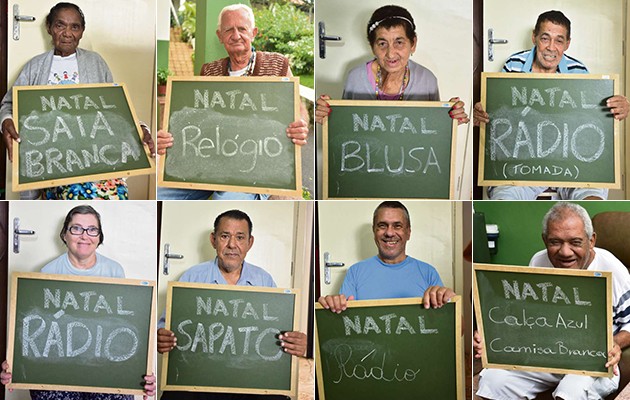 NATAL
SAIA
BRANCA
NATAL
Relógio
NATAL
BLUSA
NATAL
RÁDIO
(TOMADA)
NATAL
RÁDIO
NATAL
SAPATO
NATAL
Rádio
NATAL
Calça Azul
Camisa Branca